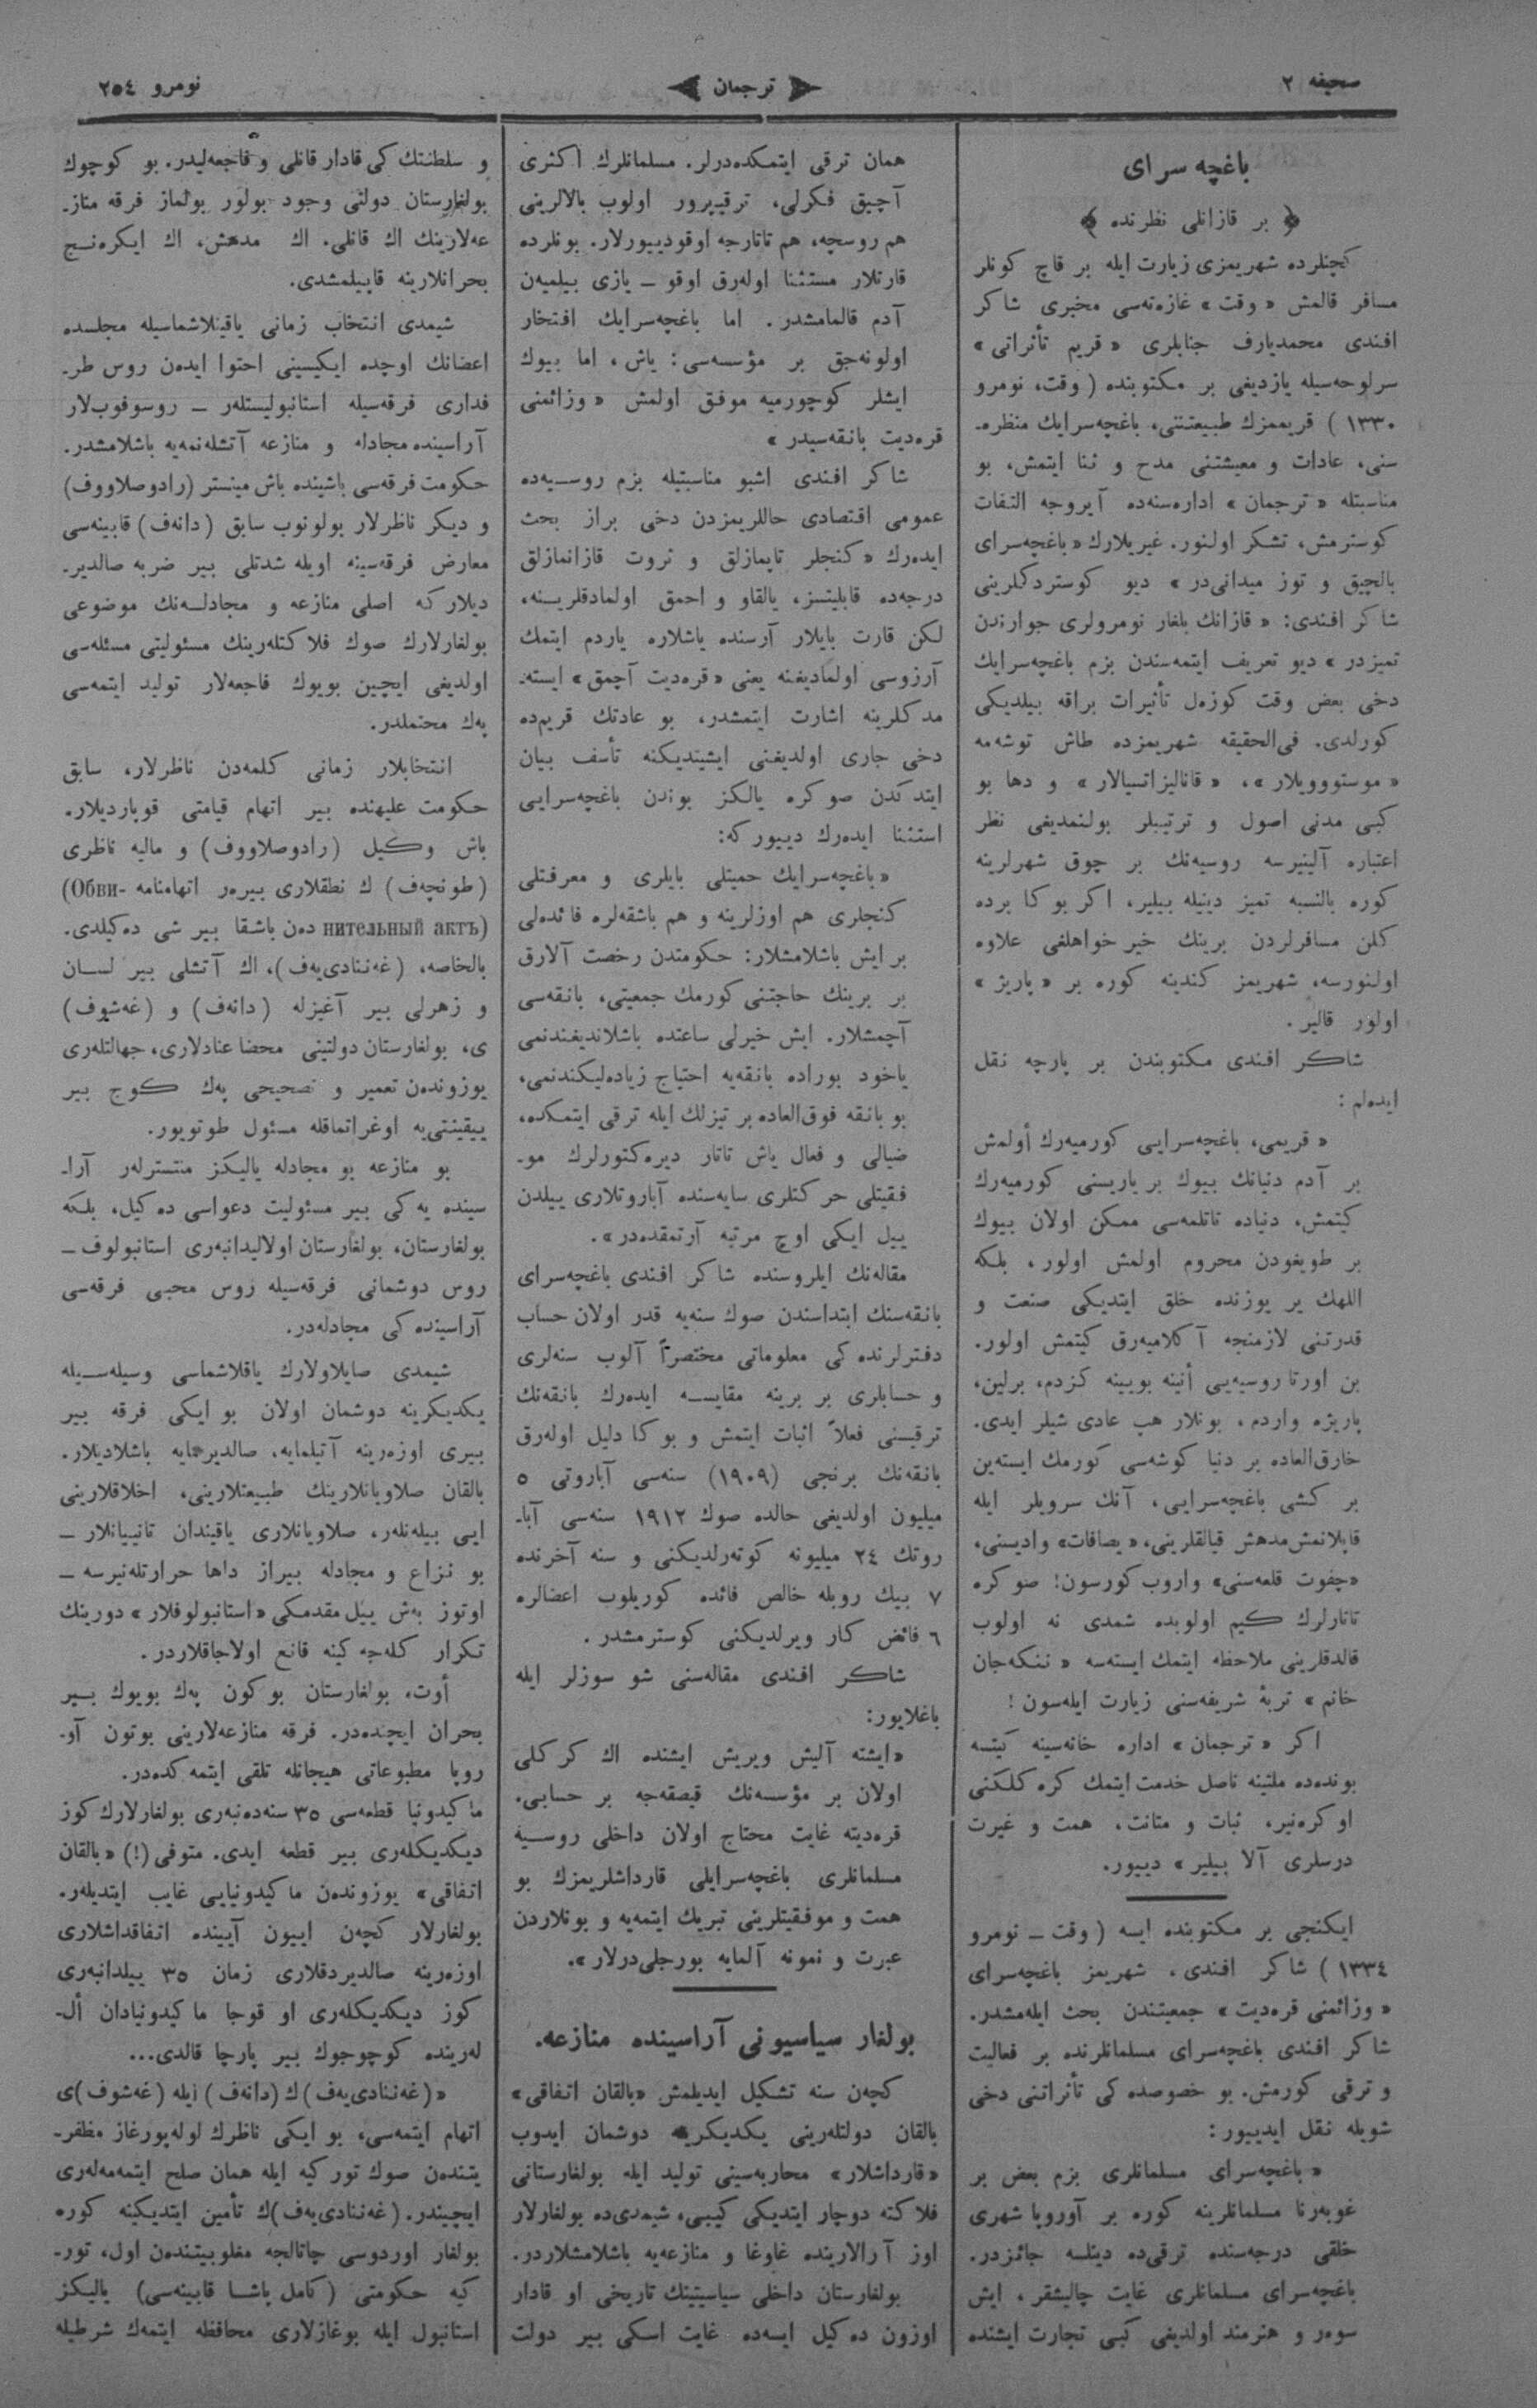 صحیفه ٢
ترجمان
نومرو ٢٥٤
باغچه سرای
﴿ بر قازانلی نظرنده ﴾
كچنلرده شهریمزی زیارت ایله بر قاچ كونلر
مسافر قالمش « وقت » غازه‌ته‌سی مخبری شاكر
افندی محمدیارف جنابلری « قریم تأثراتی »
سرلوحه‌سیله یازدیغی بر مكتوبنده ( وقت، نومرو
١٣٣٠ ) قریممزك طبیعتنی، باغچه‌سرایك منظره‌ـ
سنی، عادات و معیشتنی مدح و ثنا ایتمش، بو
مناسبتله « ترجمان » اداره‌سنه‌ده آیروجه التفات
كوسترمش، تشكر اولنور. غیریلارك « باغچه‌سرای
بالچیق و توز میدانی‌در » دیو كوستردكلرینی
شاكر افندی: « قازانك بلغار نومرولری جوارندن
تمیزدر » دیو تعریف ایتمه‌سندن بزم باغچه‌سرایك
دخی بعض وقت كوزه‌ل تأثیرات براقه بیلدیكی
كورلدی. فی‌الحقیقه شهریمزده طاش توشه‌مه
« موستووویلار »، « قانالیزاتسیالار » و دها بو
كبی مدنی اصول و ترتیبلر بولنمدیغی نظر
اعتباره آلینیرسه روسیه‌نك بر چوق شهرلرینه
كوره بالنسبه تمیز دینیله بیلیر، اكر بو كا برده
كلن مسافرلردن برینك خیر خواهلغی علاوه
اولنورسه، شهریمز كندینه كوره بر « پاریژ »
اولور قالیر.
شاكر افندی مكتوبندن بر پارچه نقل
ایده‌لم :
« قریمی، باغچه‌سرایی كورمیه‌رك أولمش
بر آدم دنیانك بیوك بر یاریسنی كورمیه‌رك
كیتمش، دنیاده تاتلمه‌سی ممكن اولان بیوك
بر طویغودن محروم اولمش اولور، بلكه
اللهك یر یوزنده خلق ایتدیكی صنعت و
قدرتنی لازمنجه آكلامیه‌رق كیتمش اولور.
بن اورتا روسیه‌یی أنینه بویینه كزدم، برلین،
پاریژه واردم، بونلار هپ عادی شیلر ایدی.
خارق‌العاده بر دنیا كوشه‌سی كورمك ایسته‌ین
بر كشی باغچه‌سرایی، آنك سرویلر ایله
قاپلانمش مدهش قیالقلرینی، « یصافات » وادیسنی،
«چفوت قلعه‌سنی» واروب كورسون! صوكره
تاتارلرك كیم اولوبده شمدی نه اولوب
قالدقلرینی ملاحظه ایتمك ایسته‌سه « ننكه‌جان
خانم » تربهٔ شریفه‌سنی زیارت ایله‌سون !
اكر « ترجمان » اداره خانه‌سینه كیتسه
بونده‌ده ملتینه ناصل خدمت ایتمك كره كلكنی
اوكره‌نیر، ثبات و متانت، همت و غیرت
درسلری آلا بیلیر » دییور.
ایكنجی بر مكتوبنده ایسه ( وقت ـ نومرو
١٣٣٤ ) شاكر افندی، شهریمز باغچه‌سرای
« وزائمنی قره‌دیت » جمعیتندن بحث ایله‌مشدر.
شاكر افندی باغچه‌سرای مسلمانلرنده بر فعالیت
و ترقی كورمش. بو خصوصده كی تأثراتنی دخی
شویله نقل ایدییور :
« باغچه‌سرای مسلمانلری بزم بعض بر
غوبه‌رنا مسلمانلرینه كوره بر آوروپا شهری
خلقی درجه‌سنده ترقی‌ده دینلسه جائزدر.
باغچه‌سرای مسلمانلری غایت چالیشقر، ایش
سوه‌ر و هنرمند اولدیغی كبی تجارت ایشنده
همان ترقی ایتمكده‌درلر. مسلمانلرك اكثری
آچیق فكرلی، ترقیپرور اولوب بالالرینی
هم روسچه، هم تاتارجه اوقودییورلار. بونلرده
قارتلار مستثنا اوله‌رق اوقو ـ یازی بیلمیه‌ن
آدم قالمامشدر. اما باغچه‌سرایك افتخار
اولونه‌جق بر مؤسسه‌سی: یاش، اما بیوك
ایشلر كوچورمیه موفق اولمش « وزائمنی
قره‌دیت بانقه‌سیدر »
شاكر افندی اشبو مناسبتیله بزم روسیه‌ده
عمومی اقتصادی حاللریمزدن دخی براز بحث
ایده‌رك « كنجلر تاپمازلق و ثروت قازانمازلق
درجه‌ده قابلیتسز، یالقاو و احمق اولمادقلرینه،
لكن قارت بایلار آرسنده یاشلاره یاردم ایتمك
آرزوسی اولمادیغنه یعنی «قره‌دیت آچمق» ایسته‌ـ
مدكلرینه اشارت ایتمشدر، بو عادتك قریم‌ده
دخی جاری اولدیغنی ایشیتدیكنه تأسف بیان
ایتدكدن صوكره یالكز بوندن باغچه‌سرایی
استثنا ایده‌رك دییوركه:
«باغچه‌سرایك حمیتلی بایلری و معرفتلی
كنجلری هم اوزلرینه و هم باشقه‌لره فائده‌لی
بر ایش باشلامشلار: حكومتدن رخصت آلارق
بر برینك حاجتنی كورمك جمعیتی، بانقه‌سی
آچمشلار. ایش خیرلی ساعتده باشلاندیغندنمی
یاخود بوراده بانقه‌یه احتیاج زیاده‌لیكندنمی،
بو بانقه فوق‌العاده بر تیزلك ایله ترقی ایتمكده،
ضیالی و فعال یاش تاتار دیره‌كتورلرك مو‌ـ
فقیتلی حركتلری سایه‌سنده آباروتلاری ییلدن
ییل ایكی اوچ مرتبه آرتمقده‌در».
مقاله‌نك ایلروسنده شاكر افندی باغچه‌سرای
بانقه‌سنك ابتداسندن صوك سنه‌یه قدر اولان حساب
دفترلرنده كی معلوماتی مختصراً آلوب سنه‌لری
و حسابلری بر برینه مقایسه ایده‌رك بانقه‌نك
ترقیسنی فعلاً اثبات ایتمش و بوكا دلیل اوله‌رق
بانقه‌نك برنجی (١٩٠٩) سنه‌سی آباروتی ٥
میلیون اولدیغی حالده صوك ١٩١٢ سنه‌سی آبا‌ـ
روتك ٢٤ میلیونه كوته‌رلدیكنی و سنه آخرنده
٧ بیك روبله خالص فائده كوریلوب اعضالره
٦ فائض كار ویرلدیكنی كوسترمشدر.
شاكر افندی مقاله‌سنی شو سوزلر ایله
باغلایور:
«ایشته آلیش ویریش ایشنده اك كركلی
اولان بر مؤسسه‌نك قیصقه‌جه بر حسابی.
قره‌دیته غایت محتاج اولان داخلی روسیه
مسلمانلری باغچه‌سرایلی قارداشلریمزك بو
همت و موفقیتلرینی تبریك ایتمه‌یه و بونلاردن
عبرت و نمونه آلمایه بورجلی‌درلار».
بولغار سیاسیونی آراسینده منازعه.
كچه‌ن سنه تشكیل ایدیلمش «بالقان اتفاقی»
بالقان دولتله‌رینی یكدیكرینه دوشمان ایدوب
«قارداشلار» محاربه‌سینی تولید ایله بولغارستانی
فلاكته دوچار ایتدیكی كیبی، شیمدی‌ده بولغارلار
اوز آرالارینده غاوغا و منازعه‌یه باشلامشلاردر.
بولغارستان داخلی سیاسیتینك تاریخی او قادار
اوزون ده‌كیل ایسه‌ده غایت اسكی بیر دولت
و سلطنتك كی قادار قانلی و فاجعه‌لیدر. بو كوچوك
بولغارستان دولتی وجود بولور بولماز فرقه مناز‌ـ
عه‌لارینك اك قانلی، اك مدهش، اك ایكره‌نج
بحرانلارینه قاپیلمشدی.
شیمدی انتخاب زمانی یاقینلاشماسیله مجلسده
اعضانك اوچده ایكیسینی احتوا ایده‌ن روس طر‌ـ
فداری فرقه‌سیله استانبولیستله‌ر ـ روسوفوب‌لار
آراسینده مجادله و منازعه آتشله‌نمه‌یه باشلامشدر.
حكومت فرقه‌سی باشینده باش مینستر (رادوصلاووف)
و دیكر ناظرلار بولونوب سابق (دانه‌ف) قابینه‌سی
معارض فرقه‌سینه اویله شدتلی بیر ضربه صالدیر‌ـ
دیلاركه اصلی منازعه و مجادله‌نك موضوعی
بولغارلارك صوك فلاكتله‌رینك مسئولیتی مسئله‌سی
اولدیغی ایچین بویوك فاجعه‌لار تولید ایتمه‌سی
پك محتملدر.
انتخابلار زمانی كلمه‌دن ناظرلار، سابق
حكومت علیهنده بیر اتهام قیامتی قوپاردیلار.
باش وكیل (رادوصلاووف) و مالیه ناظری
(طونچه‌ف) ك نطقلاری بیره‌ر اتهامنامه (Обви-
нительный актъ) ده‌ن باشقا بیر شی ده‌كیلدی.
بالخاصه، (غه‌ننادی‌یه‌ف)، اك آتشلی بیر لسان
و زهرلی بیر آغیزله (دانه‌ف) و (غه‌شوف)
ی، بولغارستان دولتینی محضا عنادلاری، جهالتله‌ری
یوزونده‌ن تعمیر و تصحیحی پك كوج بیر
ییقینتی‌یه اوغراتماقله مسئول طوتویور.
بو منازعه بو مجادله یالیكز منتسترله‌ر آرا‌ـ
سینده یه كی بیر مسئولیت دعواسی ده‌كیل، بلكه
بولغارستان، بولغارستان اولالیدانبه‌ری استانبولوف ـ
روس دوشمانی فرقه‌سیله روس محبی فرقه‌سی
آراسینده كی مجادله‌در.
شیمدی صایلاولارك یاقلاشماسی وسیله‌سیله
یكدیكرینه دوشمان اولان بو ایكی فرقه بیر
بیری اوزه‌رینه آتیلمایه، صالدیرمایه باشلادیلار.
بالقان صلاویانلارینك طبیعتلارینی، اخلاقلارینی
ایی بیله‌نله‌ر، صلاویانلاری یاقیندان تانییانلار ـ
بو نزاع و مجادله بیراز داها حرارتله‌نیرسه ـ
اوتوز به‌ش ییل مقدمكی « استانبولوفلار » دورینك
تكرار كله‌جه كینه قانع اولاجاقلاردر.
أوت، بولغارستان بو كون پك بویوك بیر
بحران ایچنده‌در. فرقه منازعه‌لارینی بوتون آو‌ـ
روپا مطبوعاتی هیجانله تلقی ایتمه كده‌در.
ماكیدونیا قطعه‌سی ٣٥ سنه‌ده‌نبه‌ری بولغارلارك كوز
دیكدیكله‌ری بیر قطعه ایدی. متوفی (!) « بالقان
اتفاقی » یوزونده‌ن ماكیدونیایی غایب ایتدیله‌ر.
بولغارلار كچه‌ن ایيون آیینده اتفاقداشلاری
اوزه‌رینه صالدیردقلاری زمان ٣٥ ییلدانبه‌ری
كوز دیكدیكله‌ری او قوجا ماكیدونیادان أل‌ـ
له‌رینده كوچوجوك بیر پارچا قالدی...
« (غه‌ننادی‌یه‌ف)ك (دانه‌ف) ایله (غه‌شوف)ی
اتهام ایتمه‌سی، بو ایكی ناظرك لوله‌بورغاز مظفر‌ـ
یتنده‌ن صوك توركیه ایله همان صلح ایتمه‌مه‌له‌ری
ایچیندر. (غه‌ننادی‌یه‌ف)ك تأمین ایتدیكینه كوره
بولغار اوردوسی چاتالجه مغلوبیتنده‌ن اول، تور‌ـ
كیه حكومتی (كامل پاشا قابینه‌سی) یالیكز
استانبول ایله بوغازلاری محافظه ایتمه‌ك شرطیله